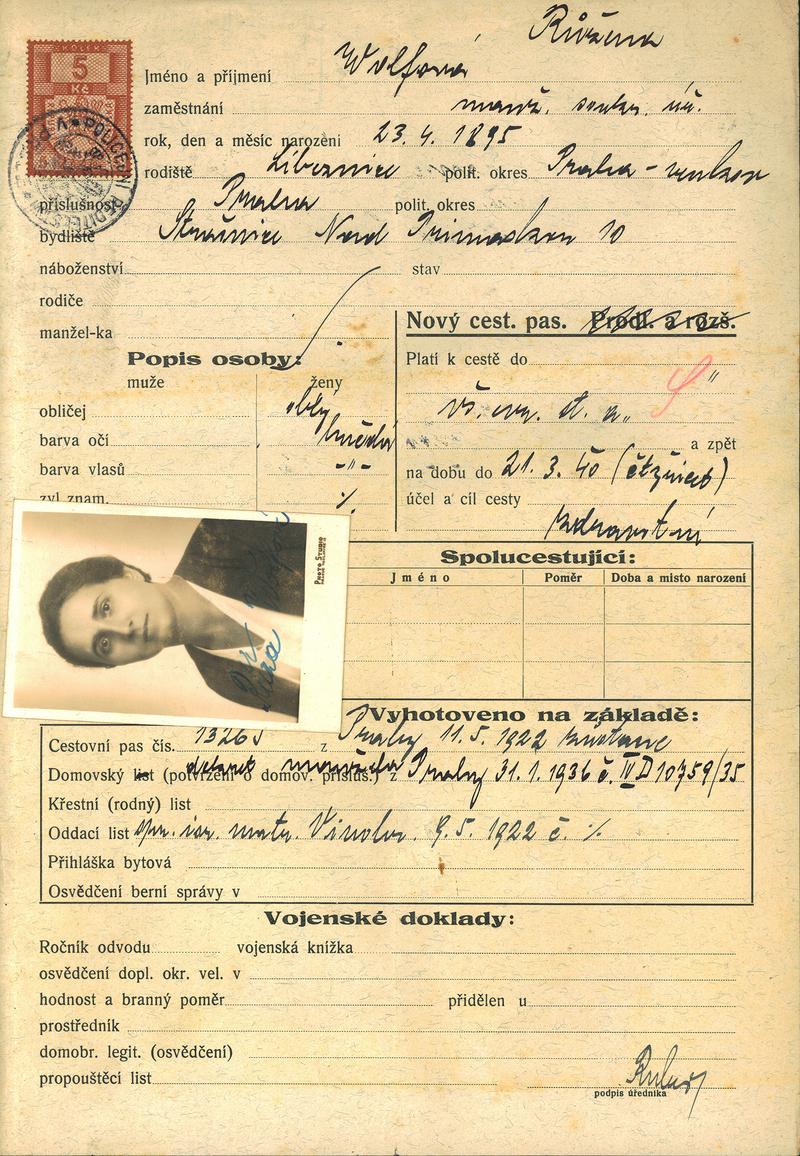 KOLEK
5
Kč
POLICEJNÍ ŘEDITELSTVÍ V PRAZE
Růžena
Jméno a příjmení Wolfová
zaměstnání manž. soukr. úř.
rok, den a měsíc narození 23. 4. 1895
rodiště Libeznice polit. okres Praha - venkov
příslušnost Praha polit. okres
bydliště Strašnice Nad Primaskou 10
náboženství stav
rodiče
manžel-ka
Nový cest. pas. Prodl. a rozš.
Popis osoby:
muže ženy
obličej oblý
barva očí hnědá
barva vlasů -"-
zvl znam. %
Platí k cestě do
vš. evr. st. a „S"
a zpět
na dobu do 21. 3. 40
účel a cíl cesty
zdravotní
Spolucestující:
Jméno Poměr Doba a místo narození
PHOTO STUDIO
Vyhotoveno na základě:
Cestovní pas čís. 13265 z Prahy 11. 5. 1922
Domovský list (potvrzení o domov. přísluš.) z Prahy 31. 1. 1936 č. IV D 10759/35
Křestní (rodný) list
Oddací list isr. matr. Vinohr. 9. 5. 1922 č. %
Přihláška bytová
Osvědčení berní správy v
Vojenské doklady:
Ročník odvodu vojenská knížka
osvědčení dopl. okr. vel. v
hodnost a branný poměr přidělen u
prostředník
domobr. legit. (osvědčení)
propouštěcí list
podpis úředníka